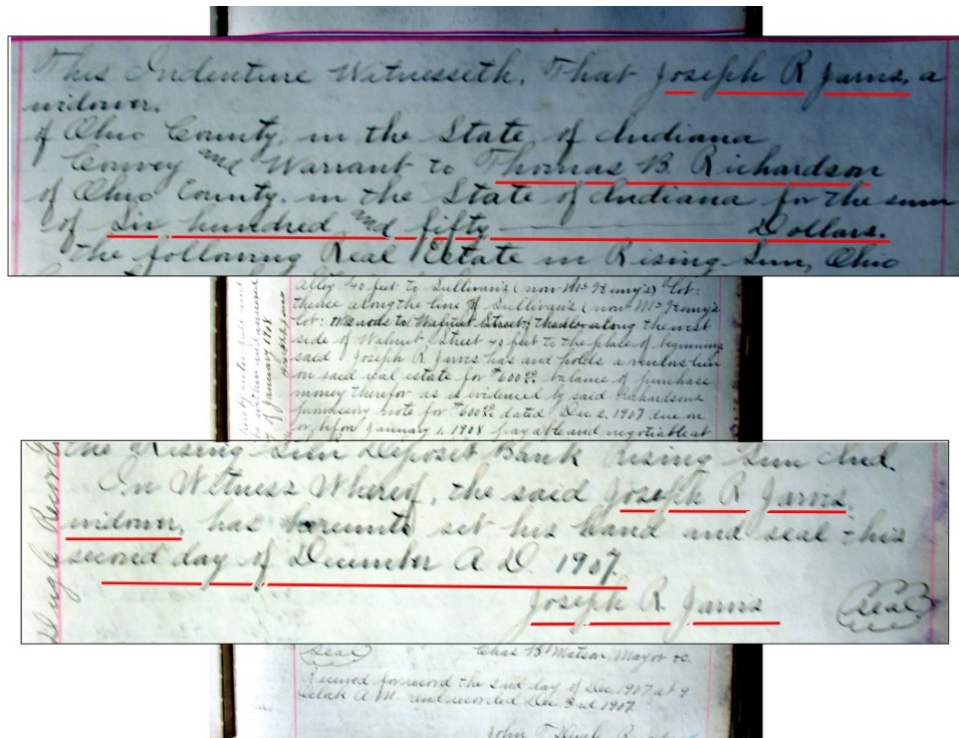 This Indenture Witnesseth, That Joseph R Jarvis, a
widower,
of Ohio County, in the State of Indiana
Convey and Warrant to Thomas B. Richardson
of Ohio County, in the State of Indiana for the sum
of Six hundred and fifty Dollars.
the following Real Estate in Rising Sun, Ohio
Alley 40 feet to Sullivan's (now McHenry's) lot:
thence along the line of Sullivan's (now McHenry's
lot: to Walnut Street, thence along the west
side of Walnut Street 40 feet to the place of beginning
said Joseph R Jarvis has and holds a vendors lien
on said real estate for $600.00 balance of purchase
money therefor as is evidenced by said Richardsons
promissory note for $600.00 dated Dec 2, 1907 due on
or before January 1, 1908 payable and negotiable at
the Rising Sun Deposit Bank Rising Sun Ind.
In Witness Whereof, the said Joseph R Jarvis
widower, has hereunto set his hand and seal this
second day of December A. D. 1907.
Joseph R. Jarvis (Seal)
(Seal) Chas B. Matson, Mayor &c.
Received for record the 2nd day of Dec. 1907 at 9
o'clock A.M. and recorded Dec 3rd 1907.
John T
of January 1908